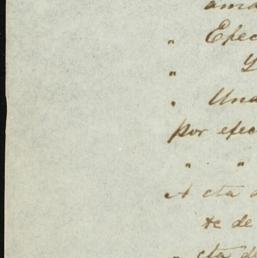 ama
" Efec
" Y
" Una
por efec
" "
A cta d
te de
" cta de